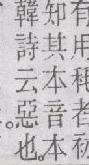 有用秏者
知其本音本
韓詩云惡也